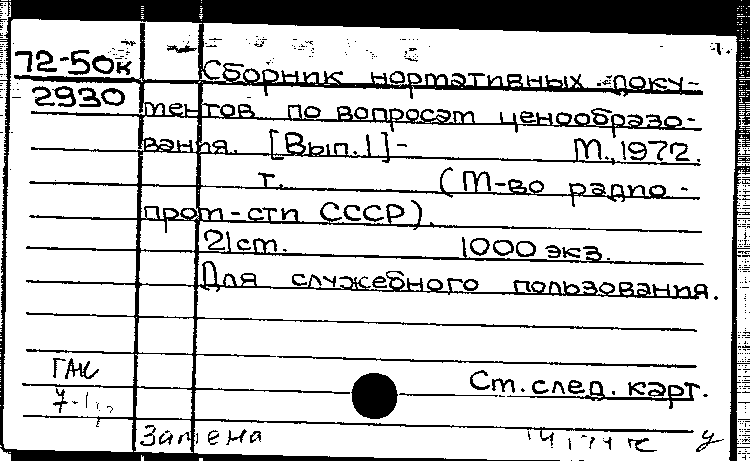 72-50к Сборник нормативных доку-
2930 ментов по вопросам ценообразо-
вания. [Вып.1]- М., 1972.
т. (М-во радио-
пром-сти СССР).
21см. 1000 экз.
Для служебного пользования.
См. след. карт.
ГАК
Замена